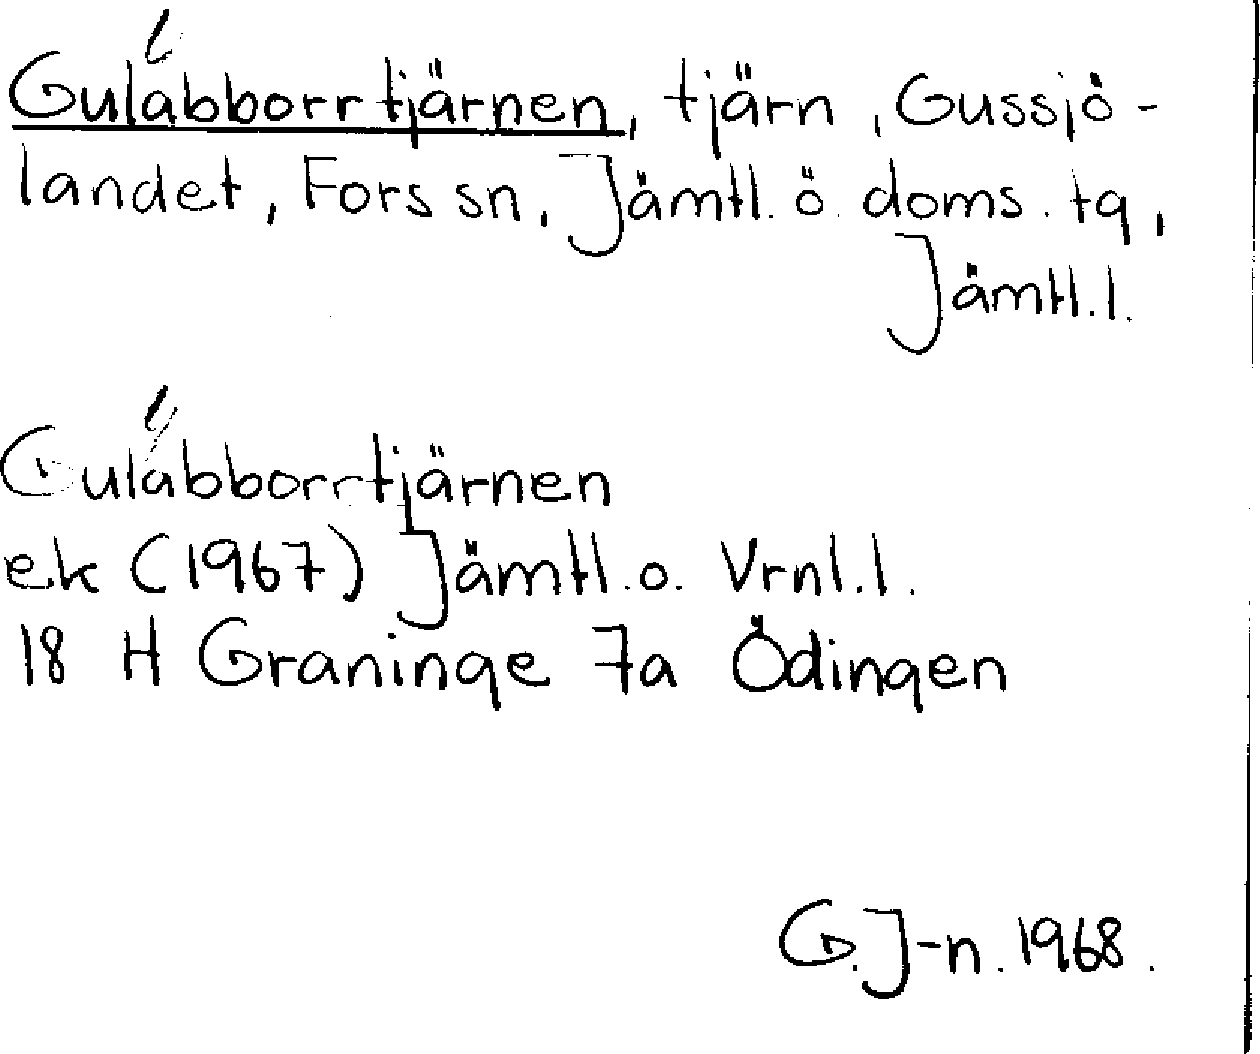 Gulabborrtjärnen, tjärn, Gussjö-
landet, Fors sn, Jämtl. ö. doms. tg,
Jämtl. l.
Gulabborrtjärnen
ek (1967) Jämtl. o. Vrnl. l.
18 H Graninge 7a Ödingen
G. J-n. 1968.